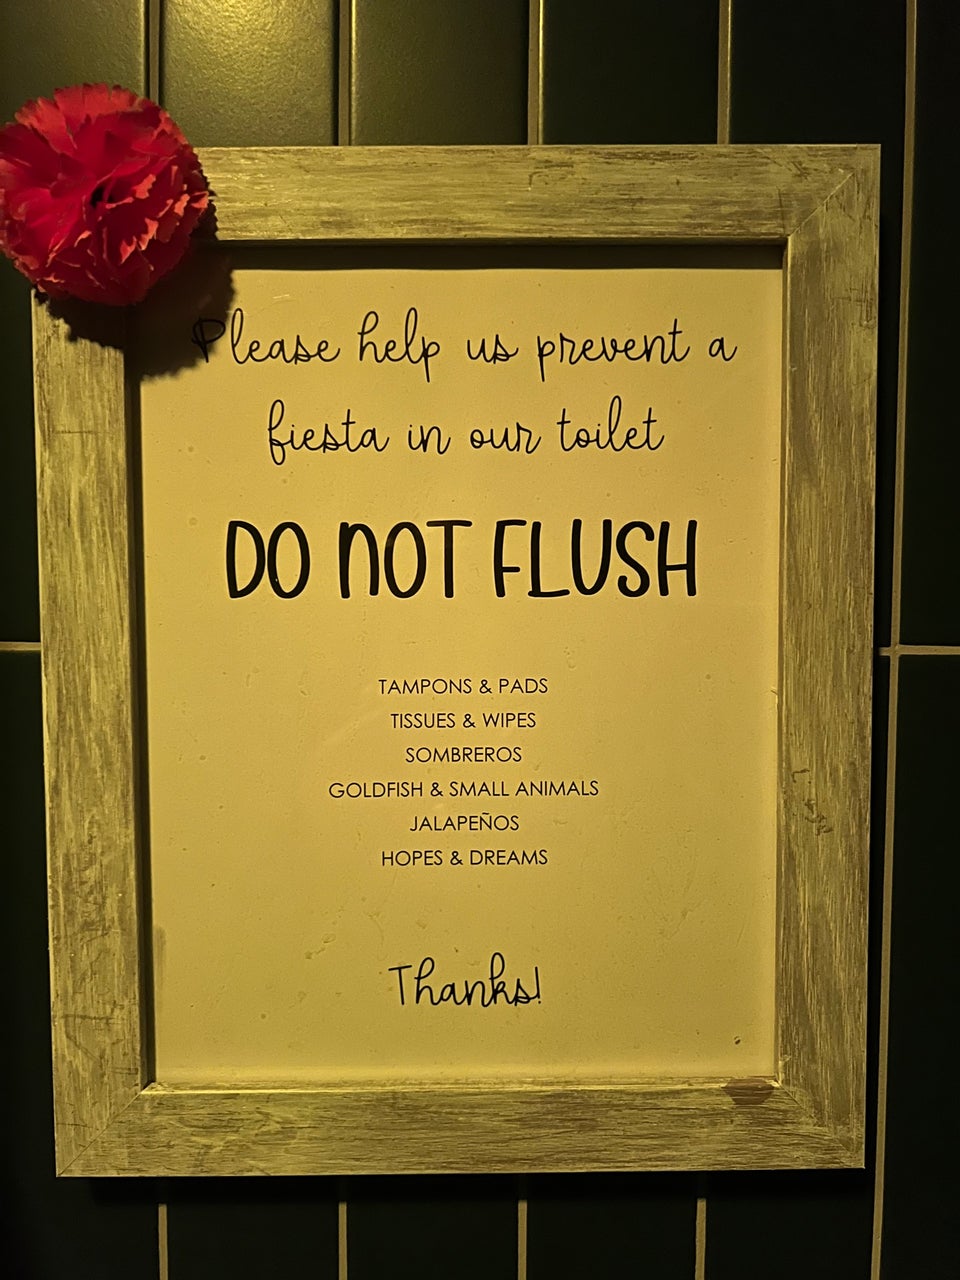 Please help us prevent a
fiesta in our toilet
DO NOT FLUSH
TAMPONS & PADS
TISSUES & WIPES
SOMBREROS
GOLDFISH & SMALL ANIMALS
JALAPEÑOS
HOPES & DREAMS
Thanks!